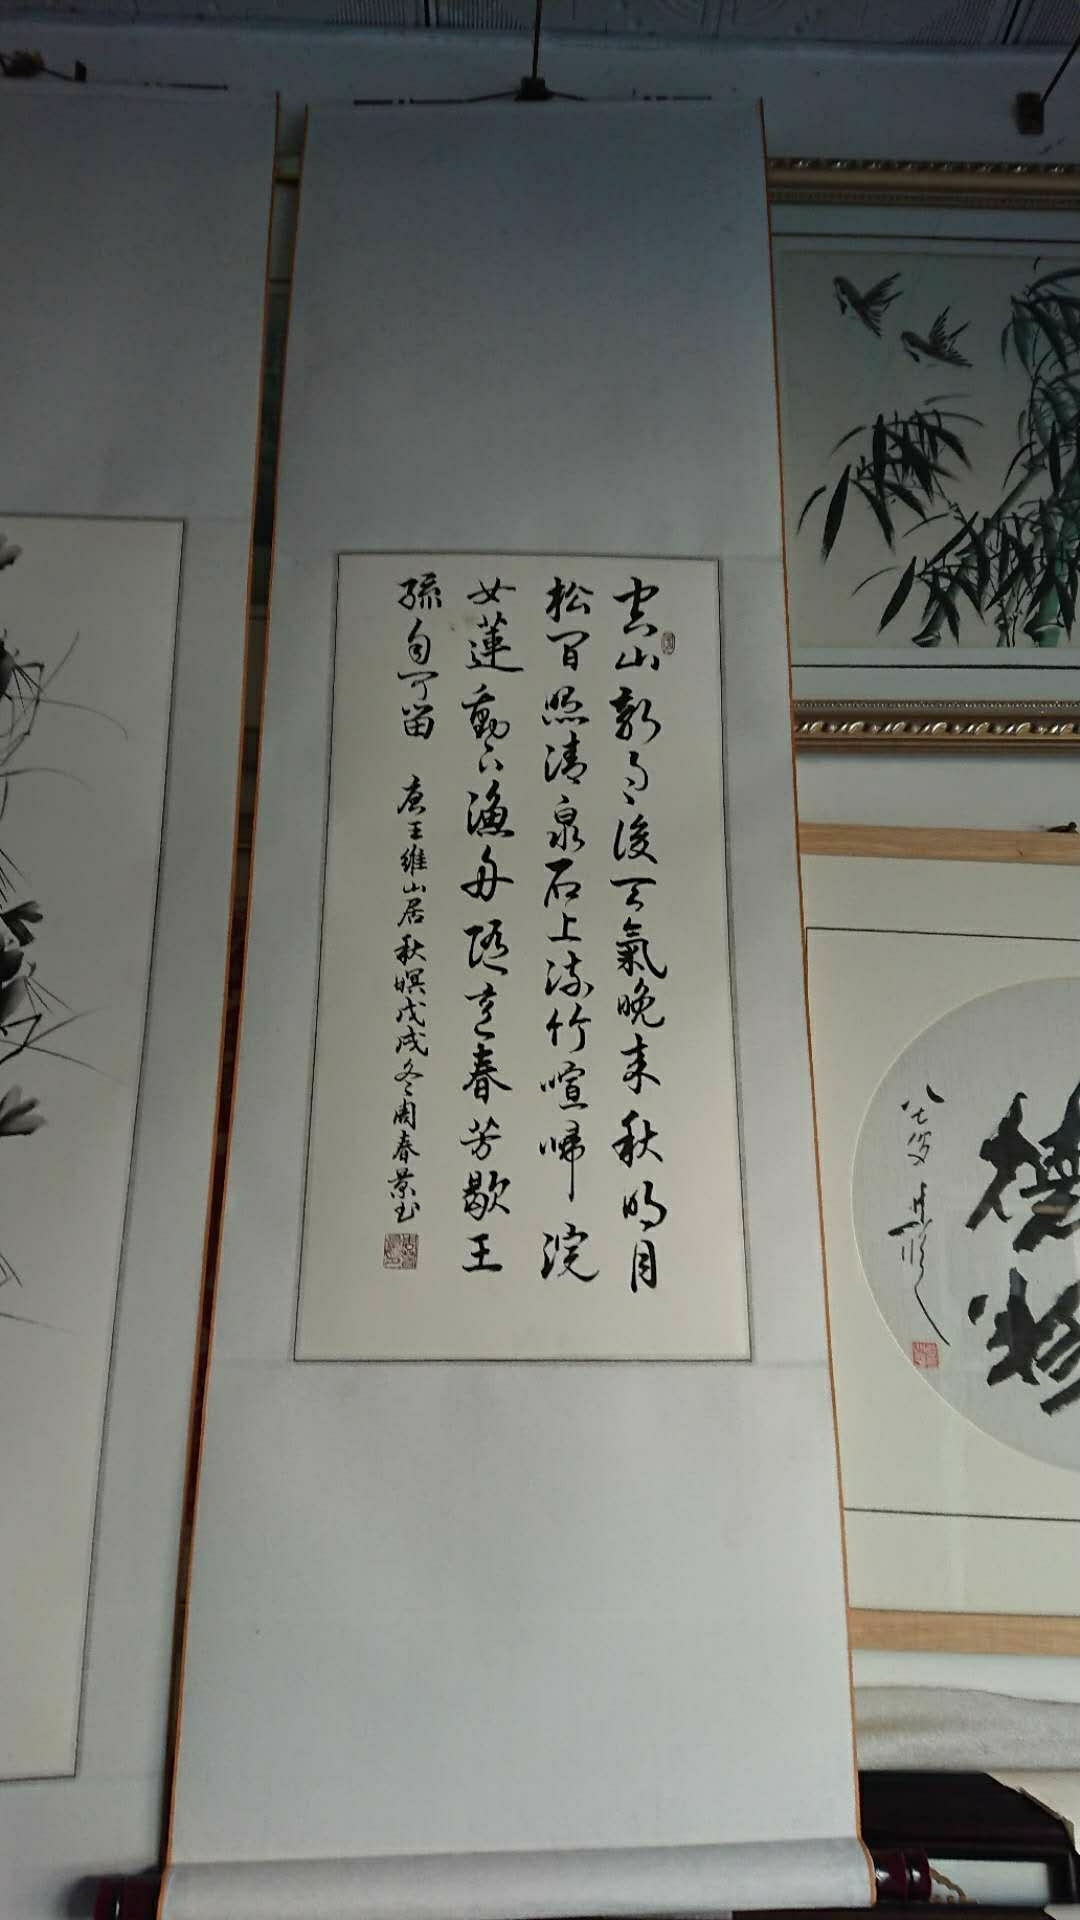 空山新雨後天氣晚来秋明月
松间照清泉石上流竹喧帰浣
女蓮動下漁舟随意春芳歇王
孫自可留 唐王維山居秋暝戊戌冬周春景书
八七叟
物